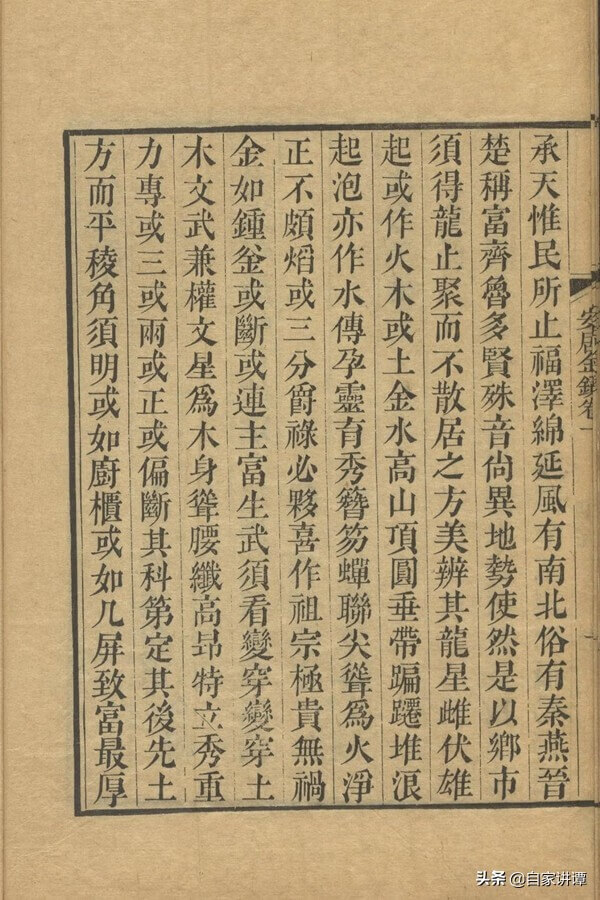 承天惟民所止福澤綿延風有南北俗有秦燕晉
楚稱富齊魯多賢殊音尚異地勢使然是以鄉市
須得龍止聚而不散居之方美辨其龍星雌伏雄
起或作火木或土金水高山頂圓垂帶蹁躚堆浪
起泡亦作水傳孕靈育秀簪笏蟬聯尖聳為火淨
正不頗熖或三分爵祿必夥喜作祖宗極貴無禍
金如鍾釡或斷或連主富生武須看變穿變穿土
木文武兼權文星為木身聳腰纖高昻特立秀重
力專或三或兩或正或偏斷其科第定其後先土
方而平稜角須明或如廚櫃或如几屏致富最厚
安居金鏡卷一
头条 @自家讲谭